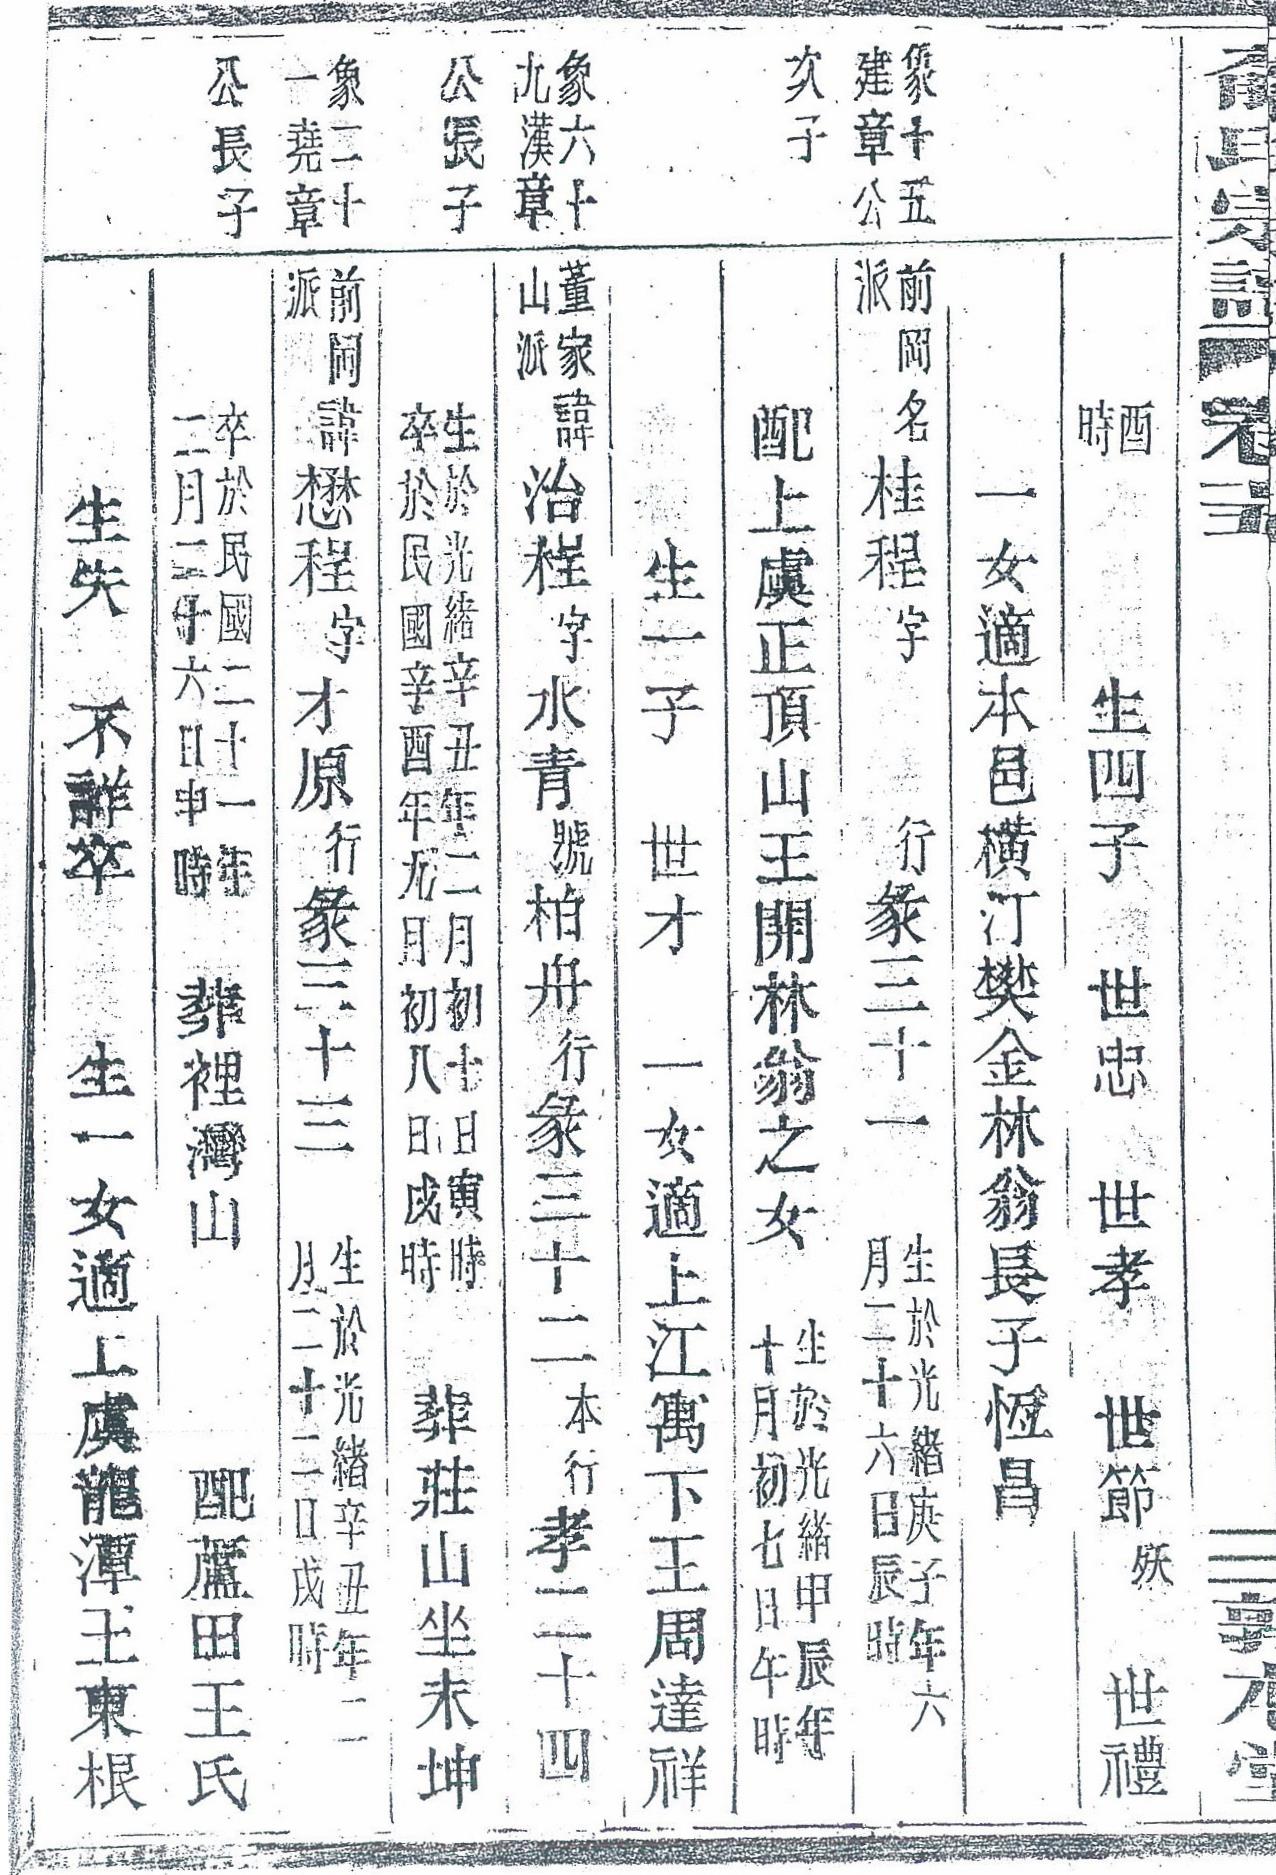 俞氏宗譜
卷二
敦本堂
酉
時
生四子 世忠 世孝 世節 殀 世禮
一女適本邑橫汀樊金林翁長子恆昌
象十五
建章公
次子
前岡名
派
桂程字 行彖三十一
生於光緒庚子年六
月二十六日辰時
配上虞正頂山王開林翁之女
生於光緒甲辰年
十月初七日午時
生一子 世才 一女適上江寓下王周達祥
象六十
九漢章
公長子
董家諱
山派
治程字水青號柏舟行彖三十二本行孝二十四
生於光緒辛丑年二月初十日寅時
卒於民國辛酉年九月初八日戌時
葬莊山坐未坤
象二十
一堯章
公長子
前岡諱
派
懋程字才原行彖三十三
生於光緒辛丑年二
月二十二日戌時
卒於民國二十一年
二月二十六日申時
葬裡灣山 配蘆田王氏
生失 不詳卒 生一女適上虞龍潭王東根